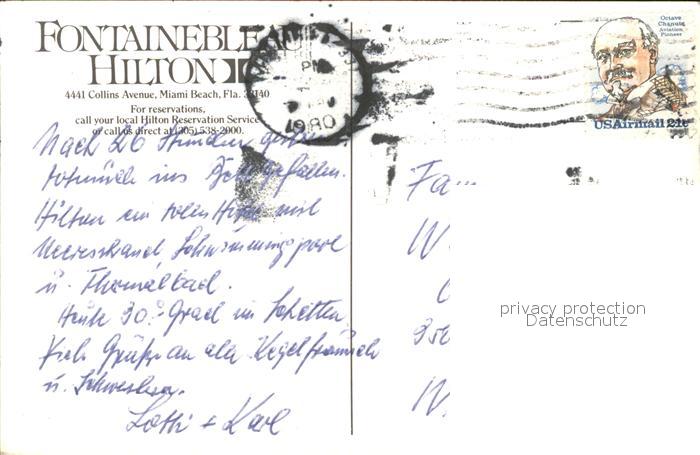 FONTAINEBLEAU
HILTON
4441 Collins Avenue, Miami Beach, Fla. 33140
For reservations,
call your local Hilton Reservation Service
or call us direct at (305) 538-2000.
PM
1980
Octave
Chanute
Aviation
Pioneer
USAirmail 21c
Nach 26 Stunden gestern
todmüde ins Bett gefallen.
Hilton ein tolles Hotel mit
Meeresstrand, Schwimmingpool
u. Thermalbad.
Heute 30° Grad im Schatten.
Viele Grüße an alle Kegelfreunde
u. Schwestern.
Lotti + Karl
Fa
W.
350
W.
privacy protection
Datenschutz